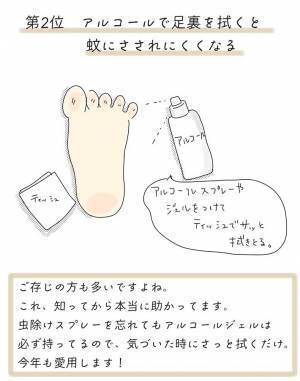 第2位 アルコールで足裏を拭くと
蚊にさされにくくなる
アルコール
ティッシュ
アルコールスプレーや
ジェルをつけて
ティッシュでサッと
拭きとる。
ご存じの方も多いですよね。
これ、知ってから本当に助かってます。
虫除けスプレーを忘れてもアルコールジェルは
必ず持ってるので、気づいた時にさっと拭くだけ。
今年も愛用します！